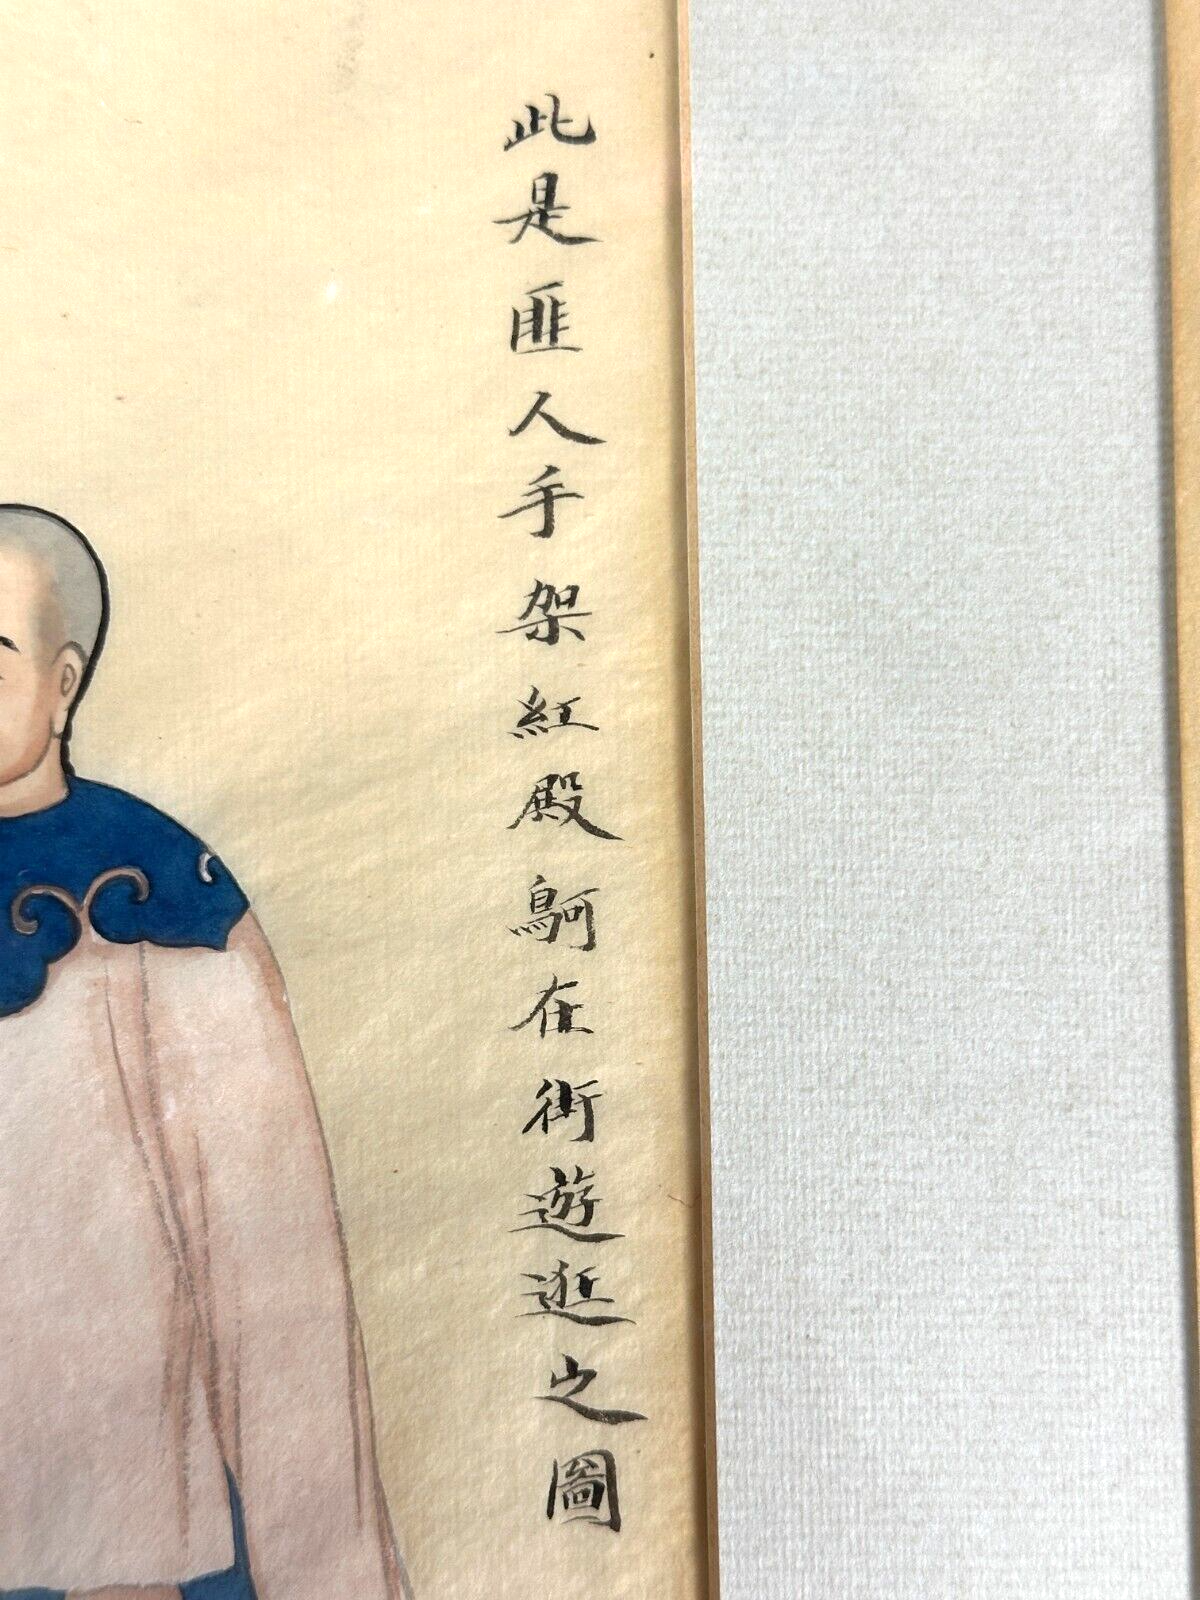 此是匪人手架紅殿鴚在街遊逛之圖